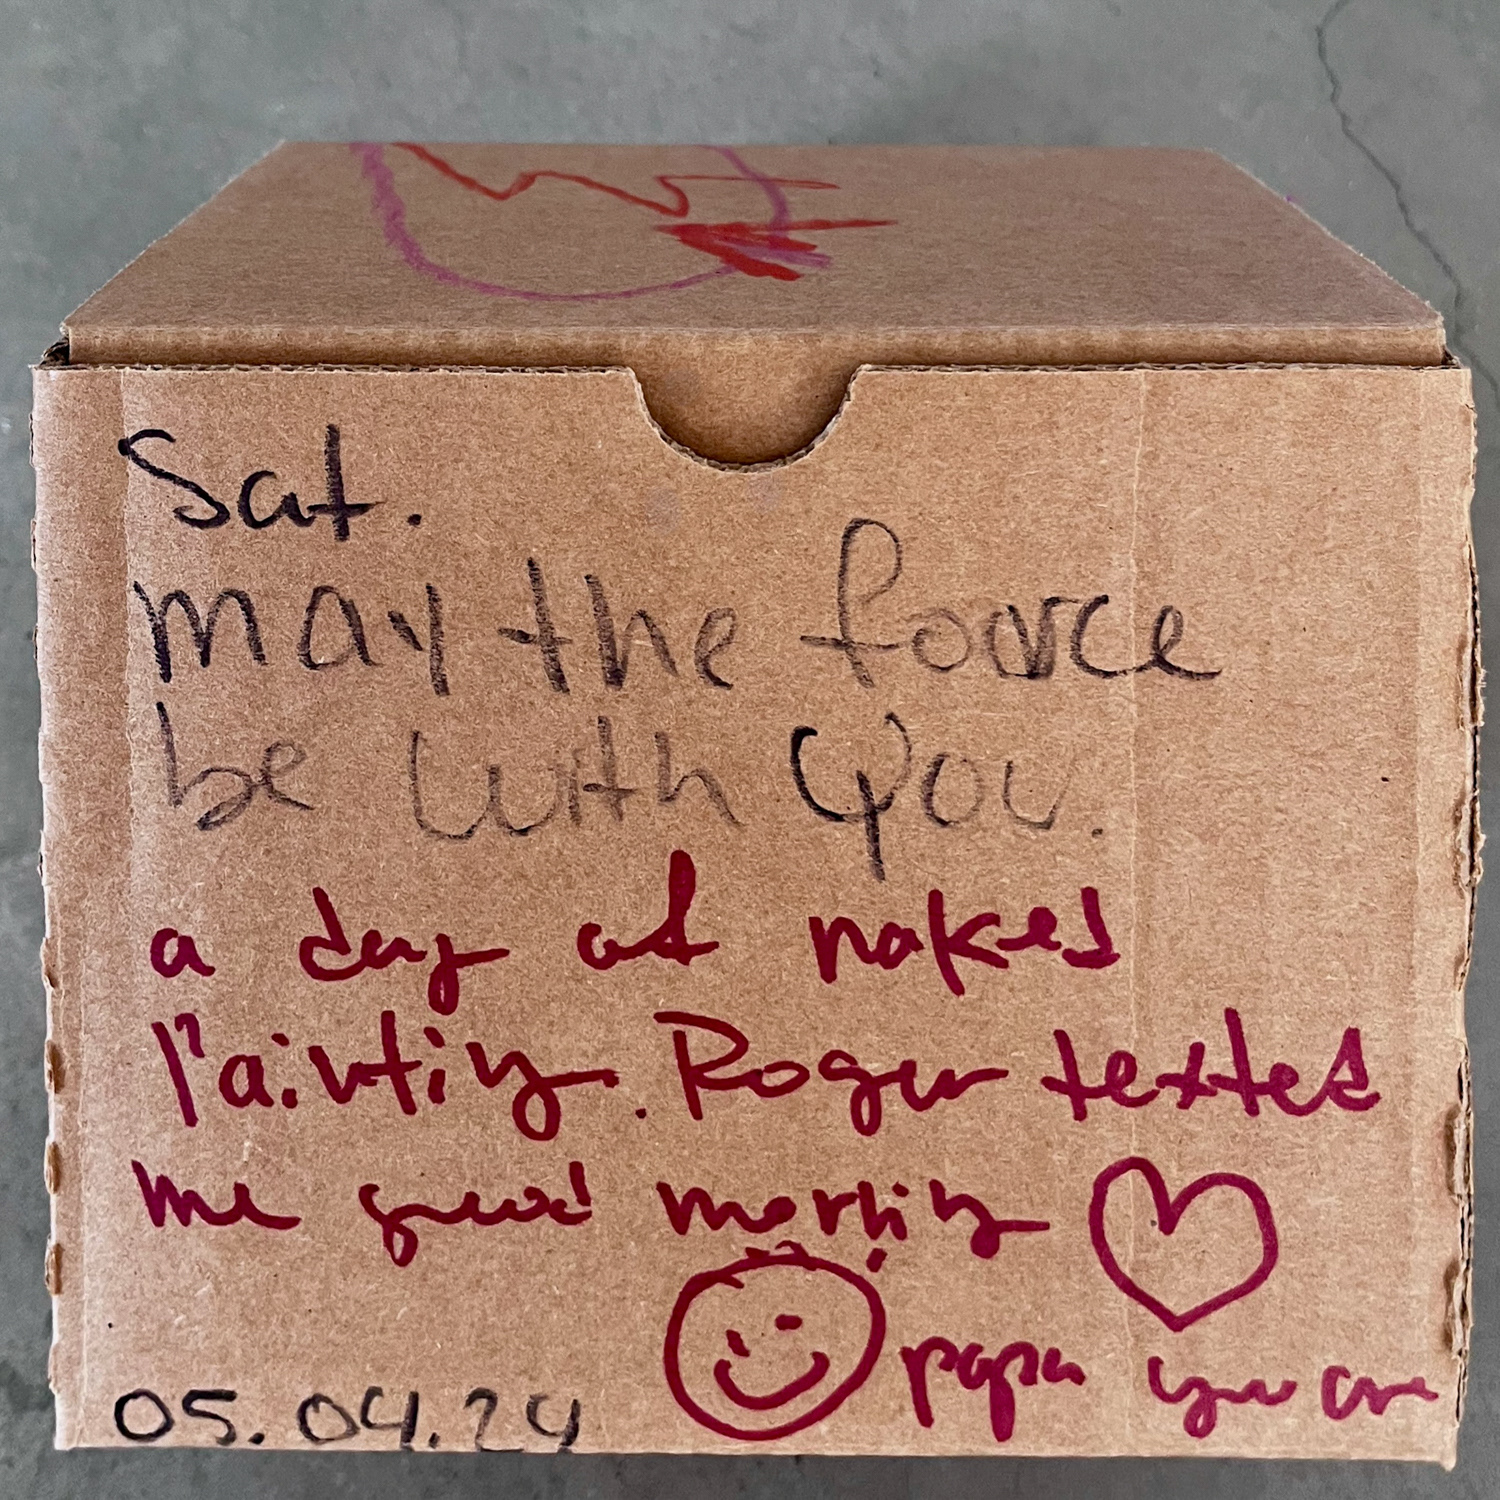 Sat.
May the force
be with You.
a day at naked
Painting. Roger texted
me good morning
papa you are
05.04.24